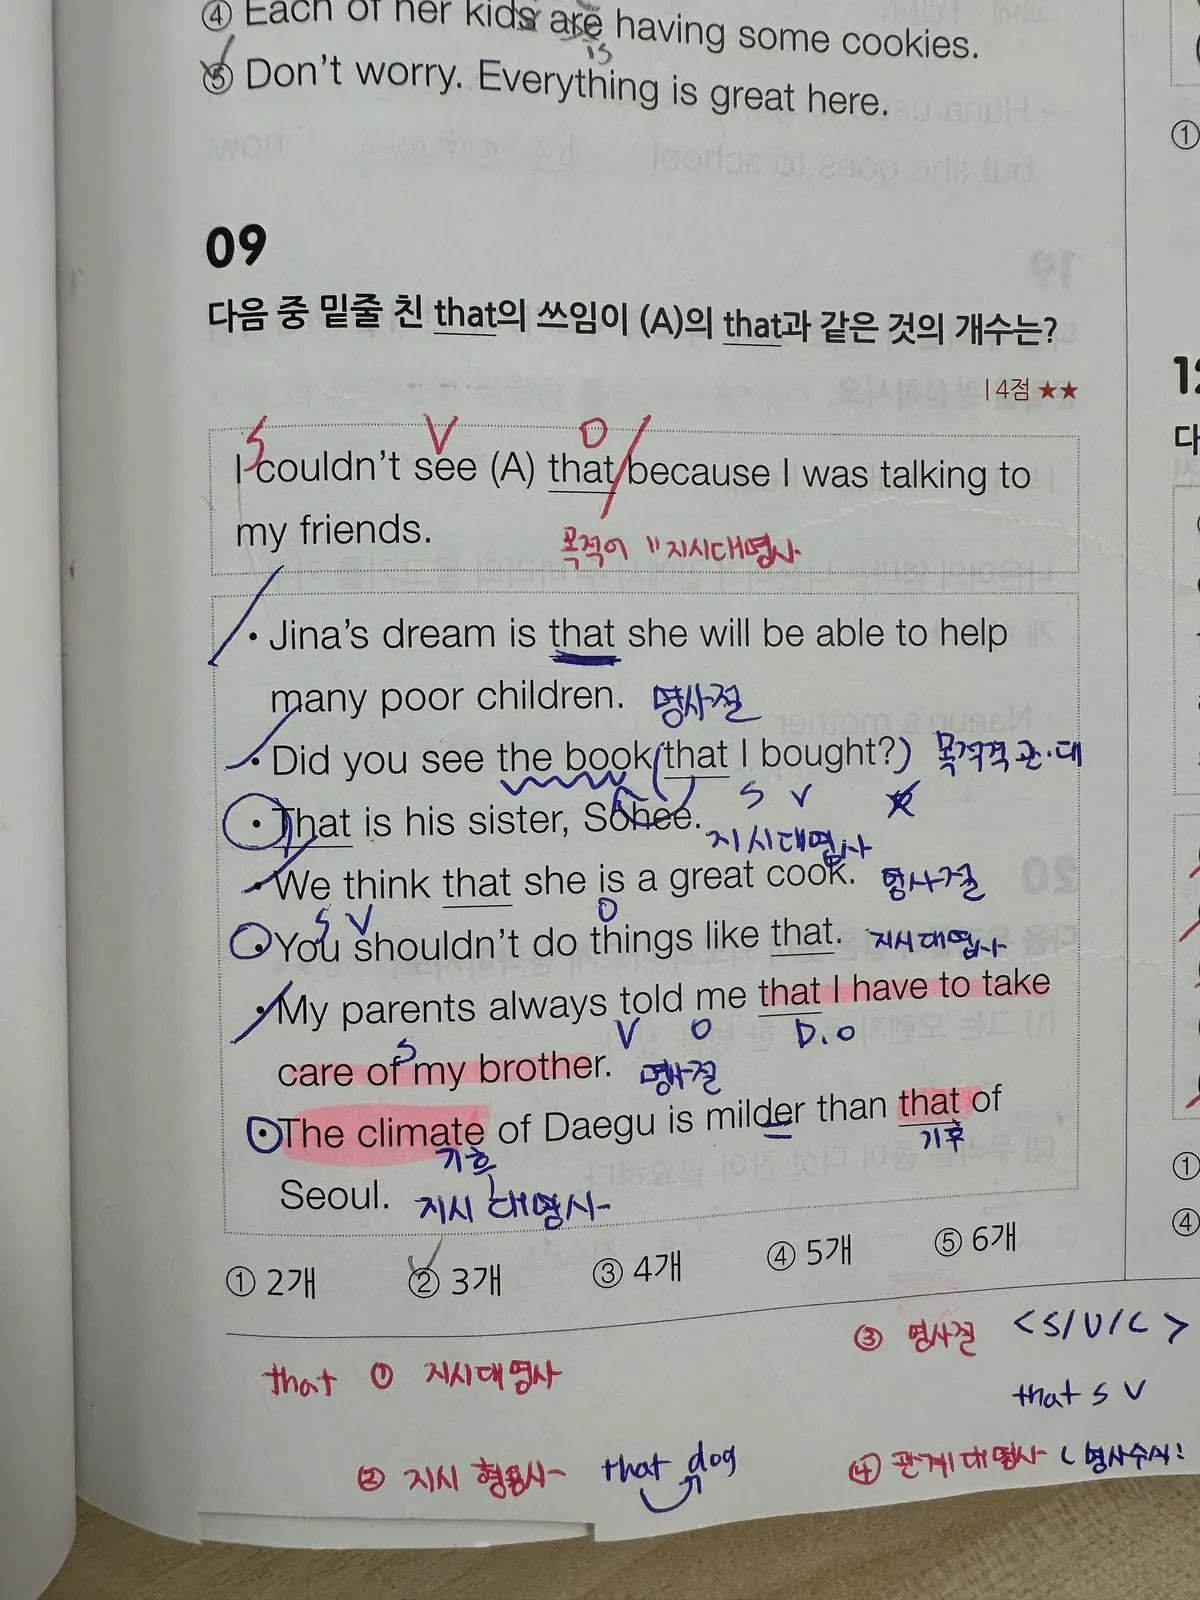 ④ Each of her kids are having some cookies.
is
⑤ Don't worry. Everything is great here.
09
다음 중 밑줄 친 that의 쓰임이 (A)의 that과 같은 것의 개수는?
| 4점 ★★
S V O
I couldn't see (A) that because I was talking to
my friends.
목적어 "지시대명사
• Jina's dream is that she will be able to help
many poor children. 명사절
• Did you see the book(that I bought?) 목적격 관·대
S V
• That is his sister, Sohee.
지시대명사
• We think that she is a great cook. 명사절
S V O
• You shouldn't do things like that. 지시대명사
• My parents always told me that I have to take
S V O D.O
care of my brother. 명사절
• The climate of Daegu is milder than that of
기후 기후
Seoul. 지시대명사
① 2개 ② 3개 ③ 4개 ④ 5개 ⑤ 6개
that ① 지시대명사
③ 명사절 <S/V/C>
that S V
② 지시 형용사 that dog
④ 관계대명사 (명사수식!
①
12
다
①
④